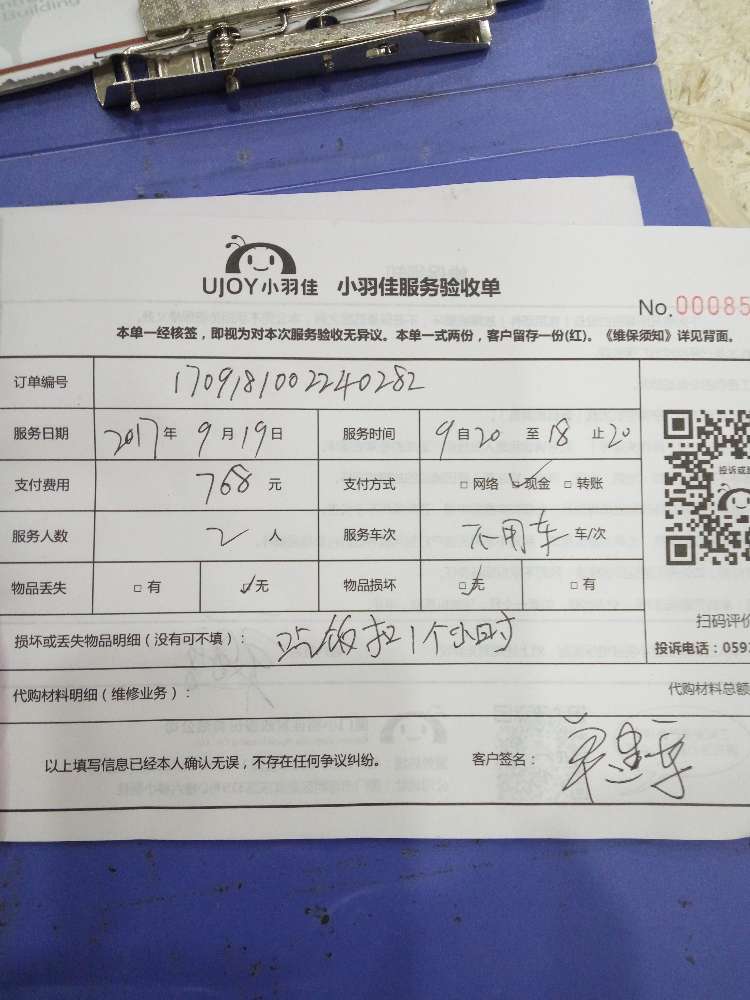 Building
UJOY小羽佳 小羽佳服务验收单
No.00085
本单一经核签，即视为对本次服务验收无异议。本单一式两份，客户留存一份(红)。《维保须知》详见背面。
订单编号 1709181002240282
服务日期 2017年9月19日 服务时间 9自20至18止20
支付费用 768元 支付方式 □网络 ☑现金 □转账
服务人数 2人 服务车次 不用车 车/次
物品丢失 □有 ☑无 物品损坏 ☑无 □有
投诉或
扫码评价
损坏或丢失物品明细（没有可不填）： 吃饭扣1个小时
投诉电话：059
代购材料明细（维修业务）：
代购材料总额
以上填写信息已经本人确认无误，不存在任何争议纠纷。 客户签名：